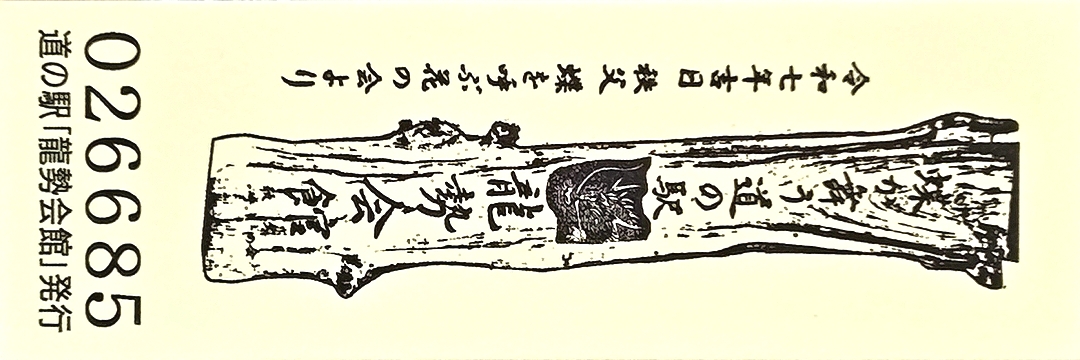 令和七年吉日 秩父 蝶を呼ぶ花の会より
蝶が舞う 道の駅
龍勢会館
026685
道の駅「龍勢会館」発行